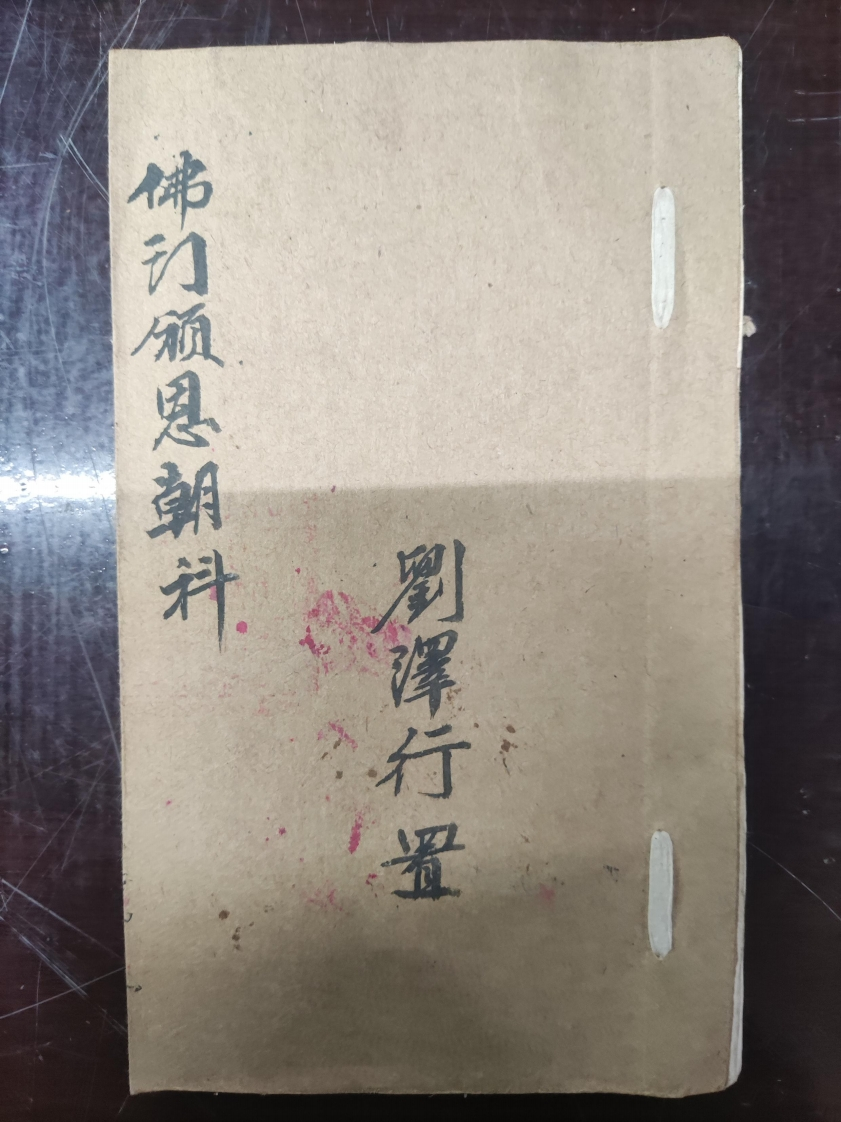 佛门颁恩朝科
劉澤行置